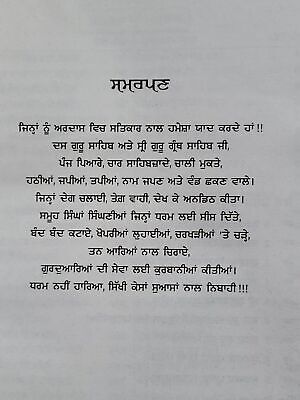 ਸਮਰਪਣ
ਜਿਨ੍ਹਾਂ ਨੂੰ ਅਰਦਾਸ ਵਿਚ ਸਤਿਕਾਰ ਨਾਲ ਹਮੇਸ਼ਾ ਯਾਦ ਕਰਦੇ ਹਾਂ !!
ਦਸ ਗੁਰੂ ਸਾਹਿਬ ਅਤੇ ਸ੍ਰੀ ਗੁਰੂ ਗ੍ਰੰਥ ਸਾਹਿਬ ਜੀ,
ਪੰਜ ਪਿਆਰੇ, ਚਾਰ ਸਾਹਿਬਜ਼ਾਦੇ, ਚਾਲੀ ਮੁਕਤੇ,
ਹਠੀਆਂ, ਜਪੀਆਂ, ਤਪੀਆਂ, ਨਾਮ ਜਪਣ ਅਤੇ ਵੰਡ ਛਕਣ ਵਾਲੇ।
ਜਿਨ੍ਹਾਂ ਦੇਗ ਚਲਾਈ, ਤੇਗ ਵਾਹੀ, ਦੇਖ ਕੇ ਅਨਡਿਠ ਕੀਤਾ।
ਸਮੂਹ ਸਿੰਘਾਂ ਸਿੰਘਣੀਆਂ ਜਿਨ੍ਹਾਂ ਧਰਮ ਲਈ ਸੀਸ ਦਿੱਤੇ,
ਬੰਦ ਬੰਦ ਕਟਾਏ, ਖੋਪਰੀਆਂ ਲੁਹਾਈਆਂ, ਚਰਖੜੀਆਂ 'ਤੇ ਚੜ੍ਹੇ,
ਤਨ ਆਰਿਆਂ ਨਾਲ ਚਿਰਾਏ,
ਗੁਰਦੁਆਰਿਆਂ ਦੀ ਸੇਵਾ ਲਈ ਕੁਰਬਾਨੀਆਂ ਕੀਤੀਆਂ।
ਧਰਮ ਨਹੀਂ ਹਾਰਿਆ, ਸਿੱਖੀ ਕੇਸਾਂ ਸੁਆਸਾਂ ਨਾਲ ਨਿਬਾਹੀ !!!